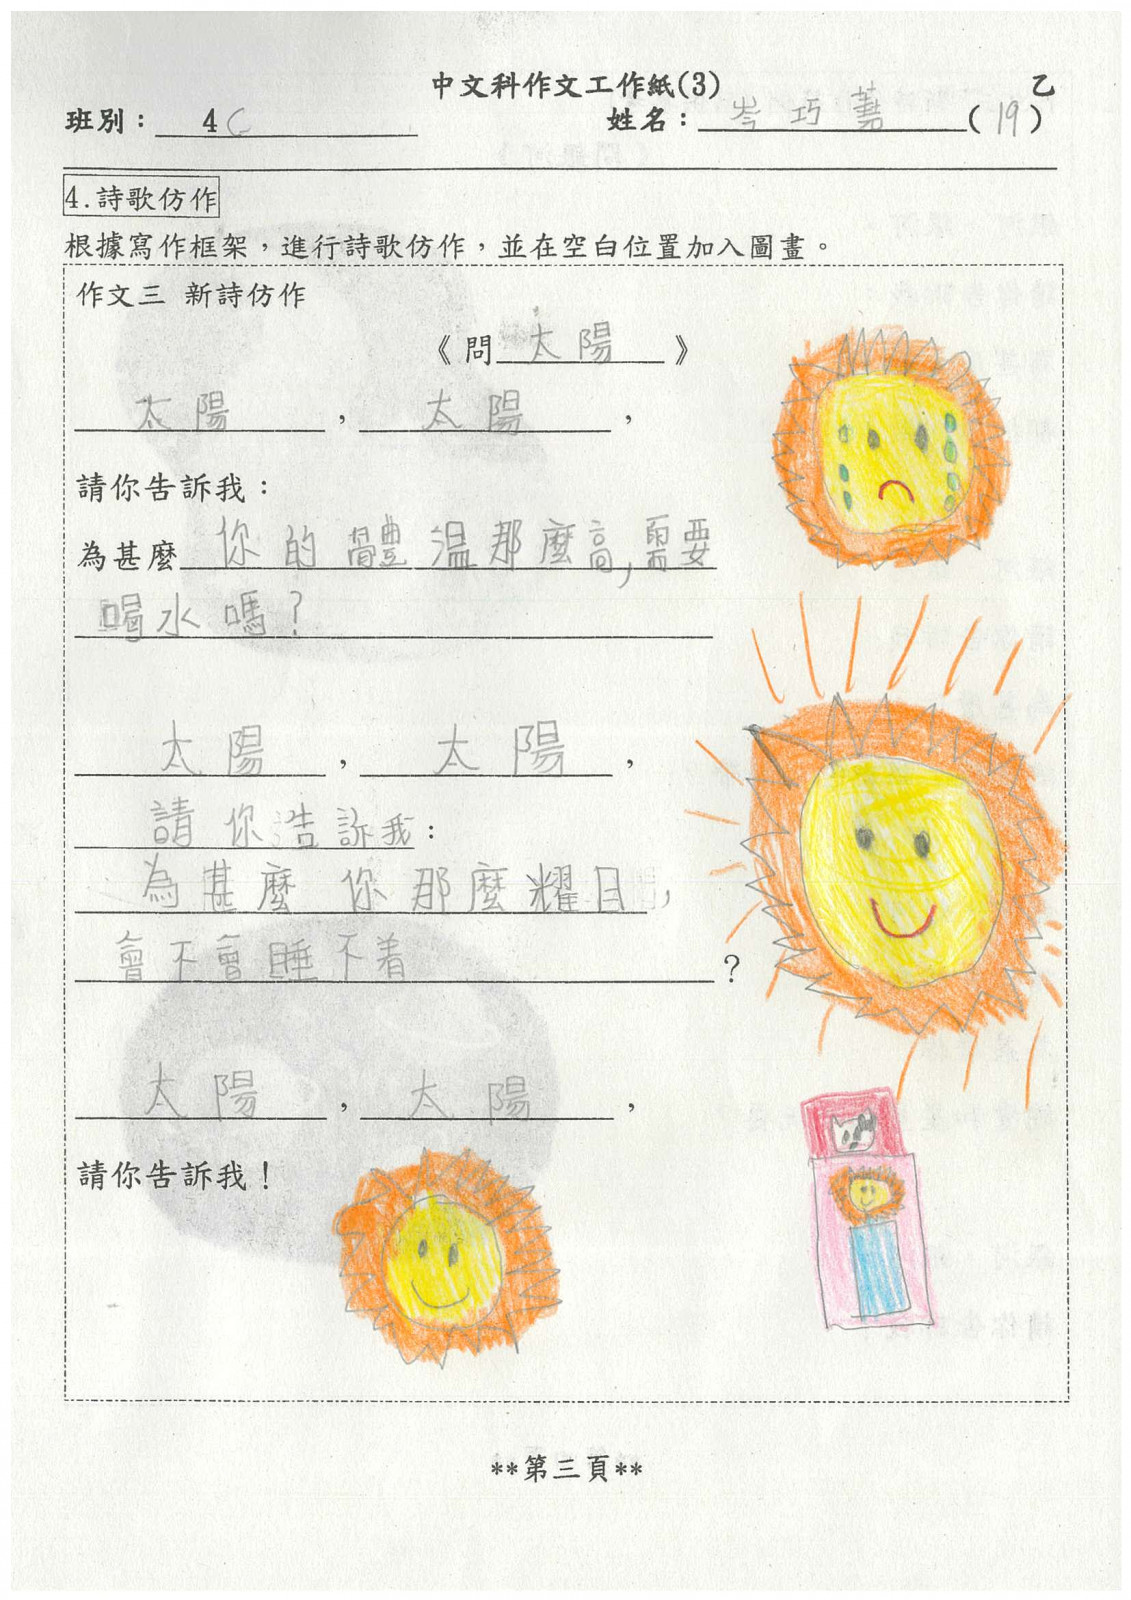 中文科作文工作紙(3) 乙
班別：4C 姓名：岑巧蕎(19)
4.詩歌仿作
根據寫作框架，進行詩歌仿作，並在空白位置加入圖畫。
作文三 新詩仿作
《問太陽》
太陽，太陽，
請你告訴我：
為甚麼你的體溫那麼高，需要
喝水嗎？
太陽，太陽，
請你浩訴我：
為甚麼你那麼耀目，
會不會睡不着？
太陽，太陽，
請你告訴我！
**第三頁**